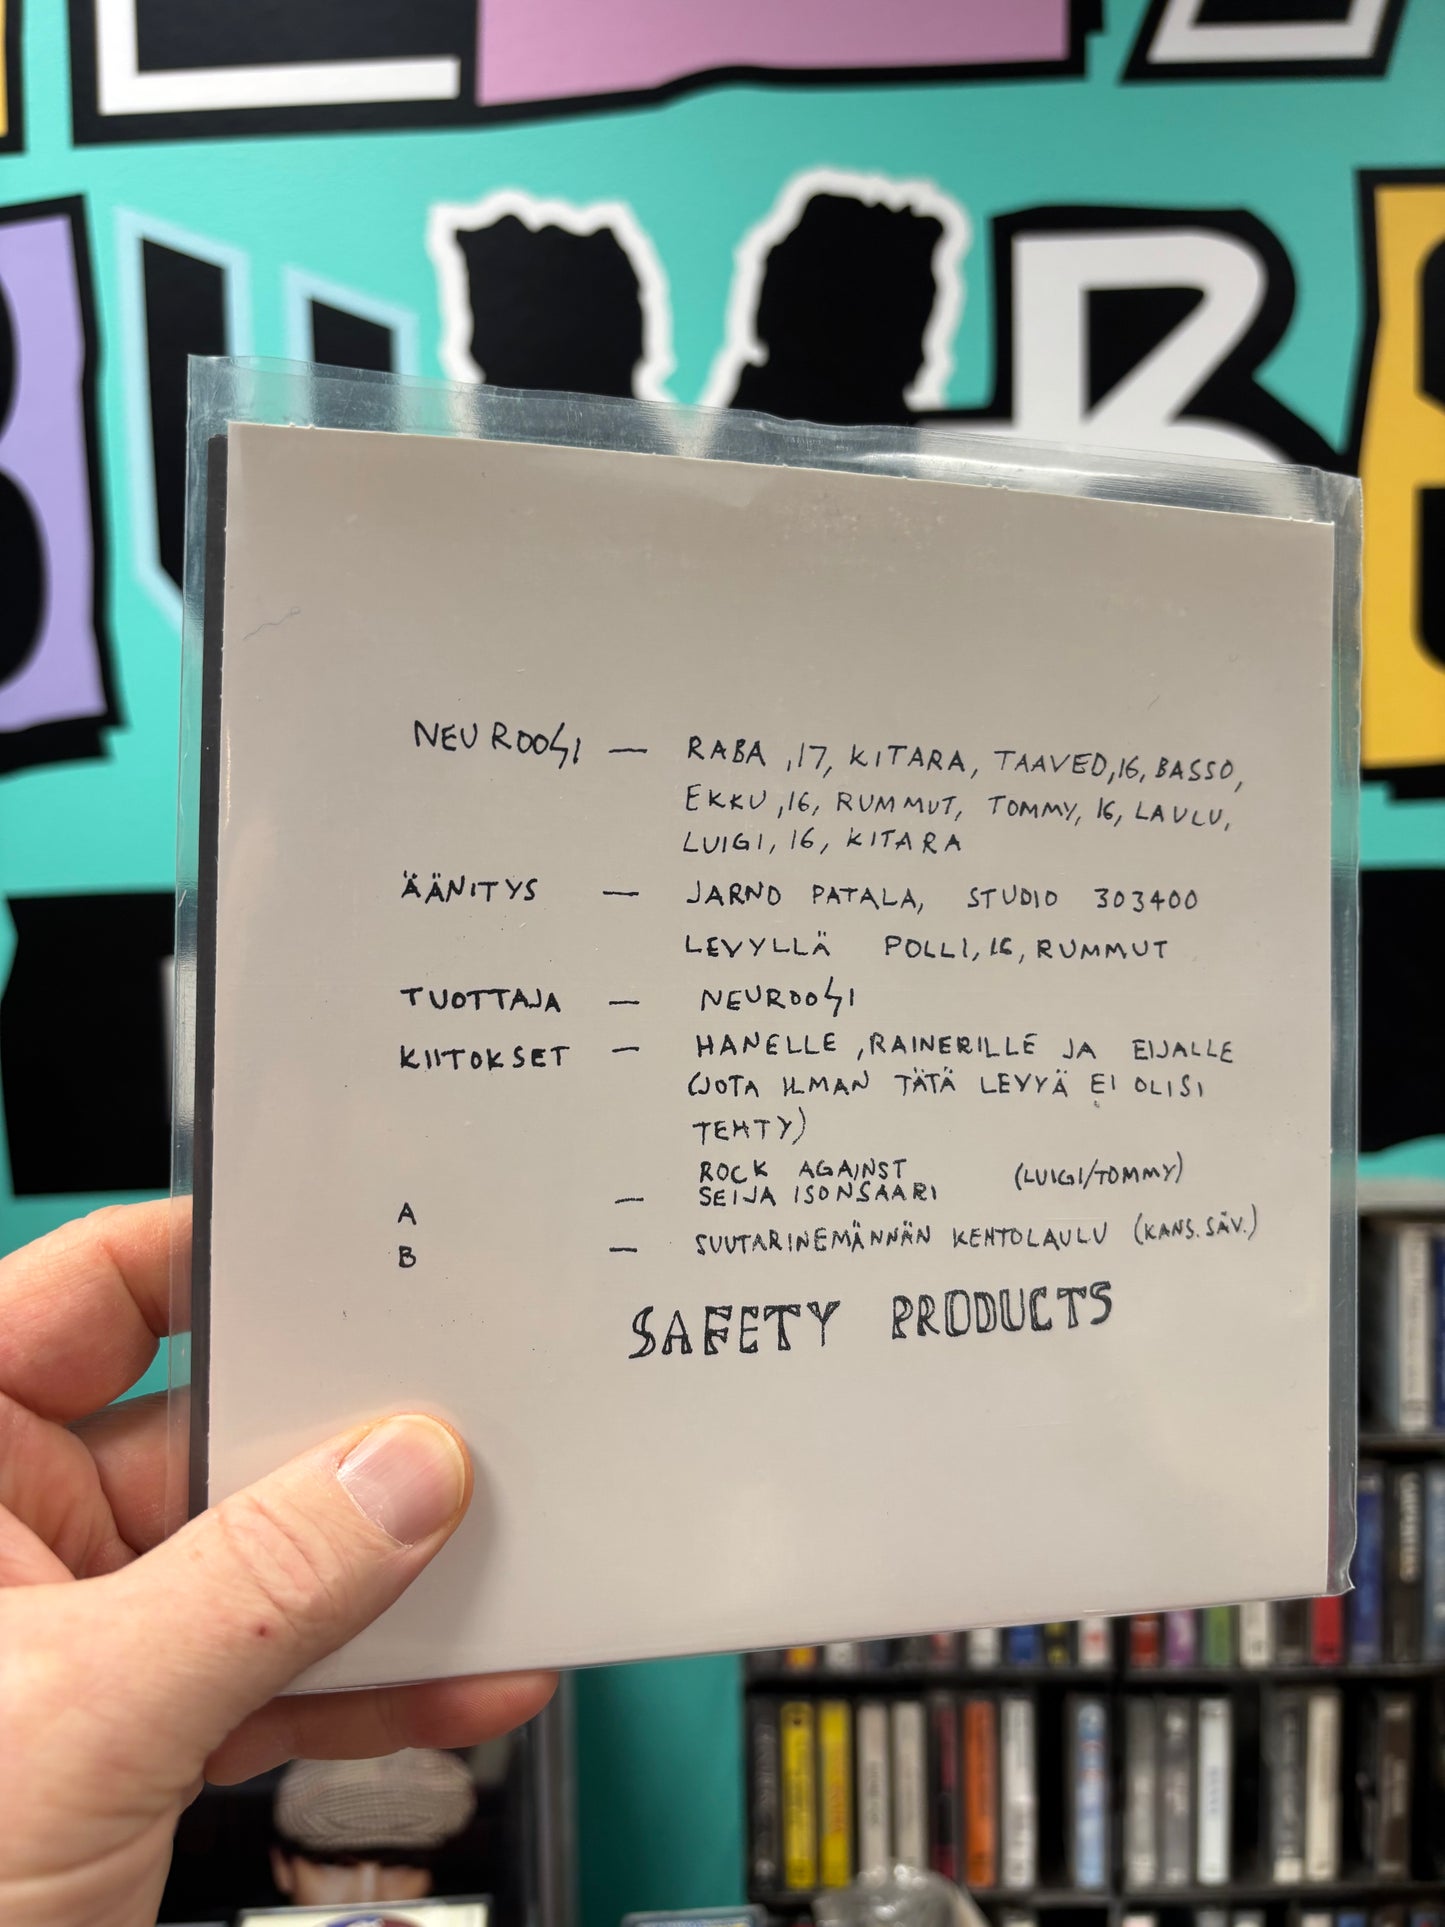 NEUROOSI — RABA ,17, KITARA, TAAVED,16, BASSO,
EKKU ,16, RUMMUT, TOMMY, 16, LAULU,
LUIGI, 16, KITARA
ÄÄNITYS — JARNO PATALA, STUDIO 303400
LEVYLLÄ POLLI, 16, RUMMUT
TUOTTAJA — NEUROOSI
KIITOKSET — HANELLE ,RAINERILLE JA EIJALLE
(JOTA ILMAN TÄTÄ LEVYÄ EI OLISI
TEHTY)
ROCK AGAINST (LUIGI/TOMMY)
A — SEIJA ISONSAARI
B — SUUTARINEMÄNNÄN KEHTOLAULU (KANS. SÄV.)
SAFETY PRODUCTS